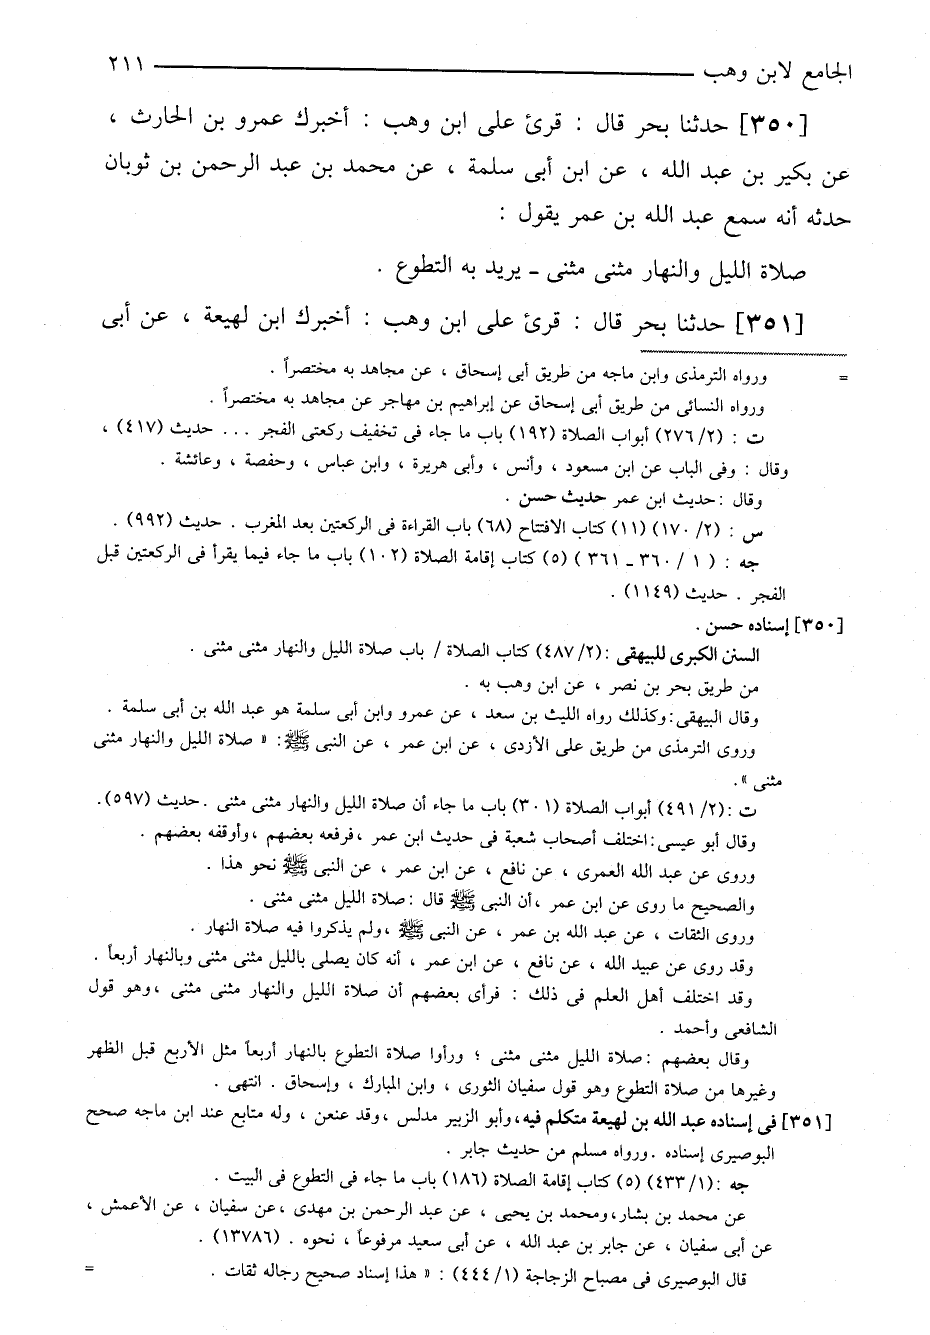 الجامع لابن وهب ـــــــــــــــــــــ ٢١١
[٣٥٠] حدثنا بحر قال : قرئ على ابن وهب : أخبرك عمرو بن الحارث ،
عن بكير بن عبد الله ، عن ابن أبى سلمة ، عن محمد بن عبد الرحمن بن ثوبان
حدثه أنه سمع عبد الله بن عمر يقول :
صلاة الليل والنهار مثنى مثنى ـ يريد به التطوع .
[٣٥١] حدثنا بحر قال : قرئ على ابن وهب : أخبرك ابن لهيعة ، عن أبى
= ورواه الترمذى وابن ماجه من طريق أبى إسحاق ، عن مجاهد به مختصراً .
ورواه النسائى من طريق أبى إسحاق عن إبراهيم بن مهاجر عن مجاهد به مختصراً .
ت : (٢/ ٢٧٦) أبواب الصلاة (١٩٢) باب ما جاء فى تخفيف ركعتى الفجر . . . حديث (٤١٧) ،
وقال : وفى الباب عن ابن مسعود ، وأنس ، وأبى هريرة ، وابن عباس ، وحفصة ، وعائشة .
وقال :حديث ابن عمر حديث حسن .
س : (٢/ ١٧٠) (١١) كتاب الافتتاح (٦٨) باب القراءة فى الركعتين بعد المغرب . حديث (٩٩٢) .
جه : ( ١ / ٣٦٠ ـ ٣٦١ ) (٥) كتاب إقامة الصلاة (١٠٢) باب ما جاء فيما يقرأ فى الركعتين قبل
الفجر . حديث (١١٤٩) .
[٣٥٠] إسناده حسن .
السنن الكبرى للبيهقى :(٢/ ٤٨٧) كتاب الصلاة / باب صلاة الليل والنهار مثنى مثنى .
من طريق بحر بن نصر ، عن ابن وهب به .
وقال البيهقى :وكذلك رواه الليث بن سعد ، عن عمرو وابن أبى سلمة هو عبد الله بن أبى سلمة .
وروى الترمذى من طريق على الأزدى ، عن ابن عمر ، عن النبى ﷺ: « صلاة الليل والنهار مثنى
مثنى ».
ت :(٢/ ٤٩١) أبواب الصلاة (٣٠١) باب ما جاء أن صلاة الليل والنهار مثنى مثنى .حديث (٥٩٧).
وقال أبو عيسى :اختلف أصحاب شعبة فى حديث ابن عمر ،فرفعه بعضهم ،وأوقفه بعضهم .
وروى عن عبد الله العمرى ، عن نافع ، عن ابن عمر ، عن النبى ﷺ نحو هذا .
والصحيح ما روى عن ابن عمر ،أن النبى ﷺ قال :صلاة الليل مثنى مثنى .
وروى الثقات ، عن عبد الله بن عمر ، عن النبى ﷺ ،ولم يذكروا فيه صلاة النهار .
وقد روى عن عبيد الله ، عن نافع ، عن ابن عمر ، أنه كان يصلى بالليل مثنى مثنى وبالنهار أربعاً .
وقد اختلف أهل العلم فى ذلك : فرأى بعضهم أن صلاة الليل والنهار مثنى مثنى ،وهو قول
الشافعى وأحمد .
وقال بعضهم :صلاة الليل مثنى مثنى ؛ ورأوا صلاة التطوع بالنهار أربعاً مثل الأربع قبل الظهر
وغيرها من صلاة التطوع وهو قول سفيان الثورى ، وابن المبارك ، وإسحاق . انتهى .
[٣٥١] فى إسناده عبد الله بن لهيعة متكلم فيه ،وأبو الزبير مدلس ،وقد عنعن ، وله متابع عند ابن ماجه صحح
البوصيرى إسناده .ورواه مسلم من حديث جابر .
جه :(١/ ٤٣٣) (٥) كتاب إقامة الصلاة (١٨٦) باب ما جاء فى التطوع فى البيت .
عن محمد بن بشار،ومحمد بن يحيى ، عن عبد الرحمن بن مهدى ،عن سفيان ، عن الأعمش ،
عن أبى سفيان ، عن جابر بن عبد الله ، عن أبى سعيد مرفوعاً ، نحوه . (١٣٧٨٦) .
قال البوصيرى فى مصباح الزجاجة (١/ ٤٤٤) : « هذا إسناد صحيح رجاله ثقات . =